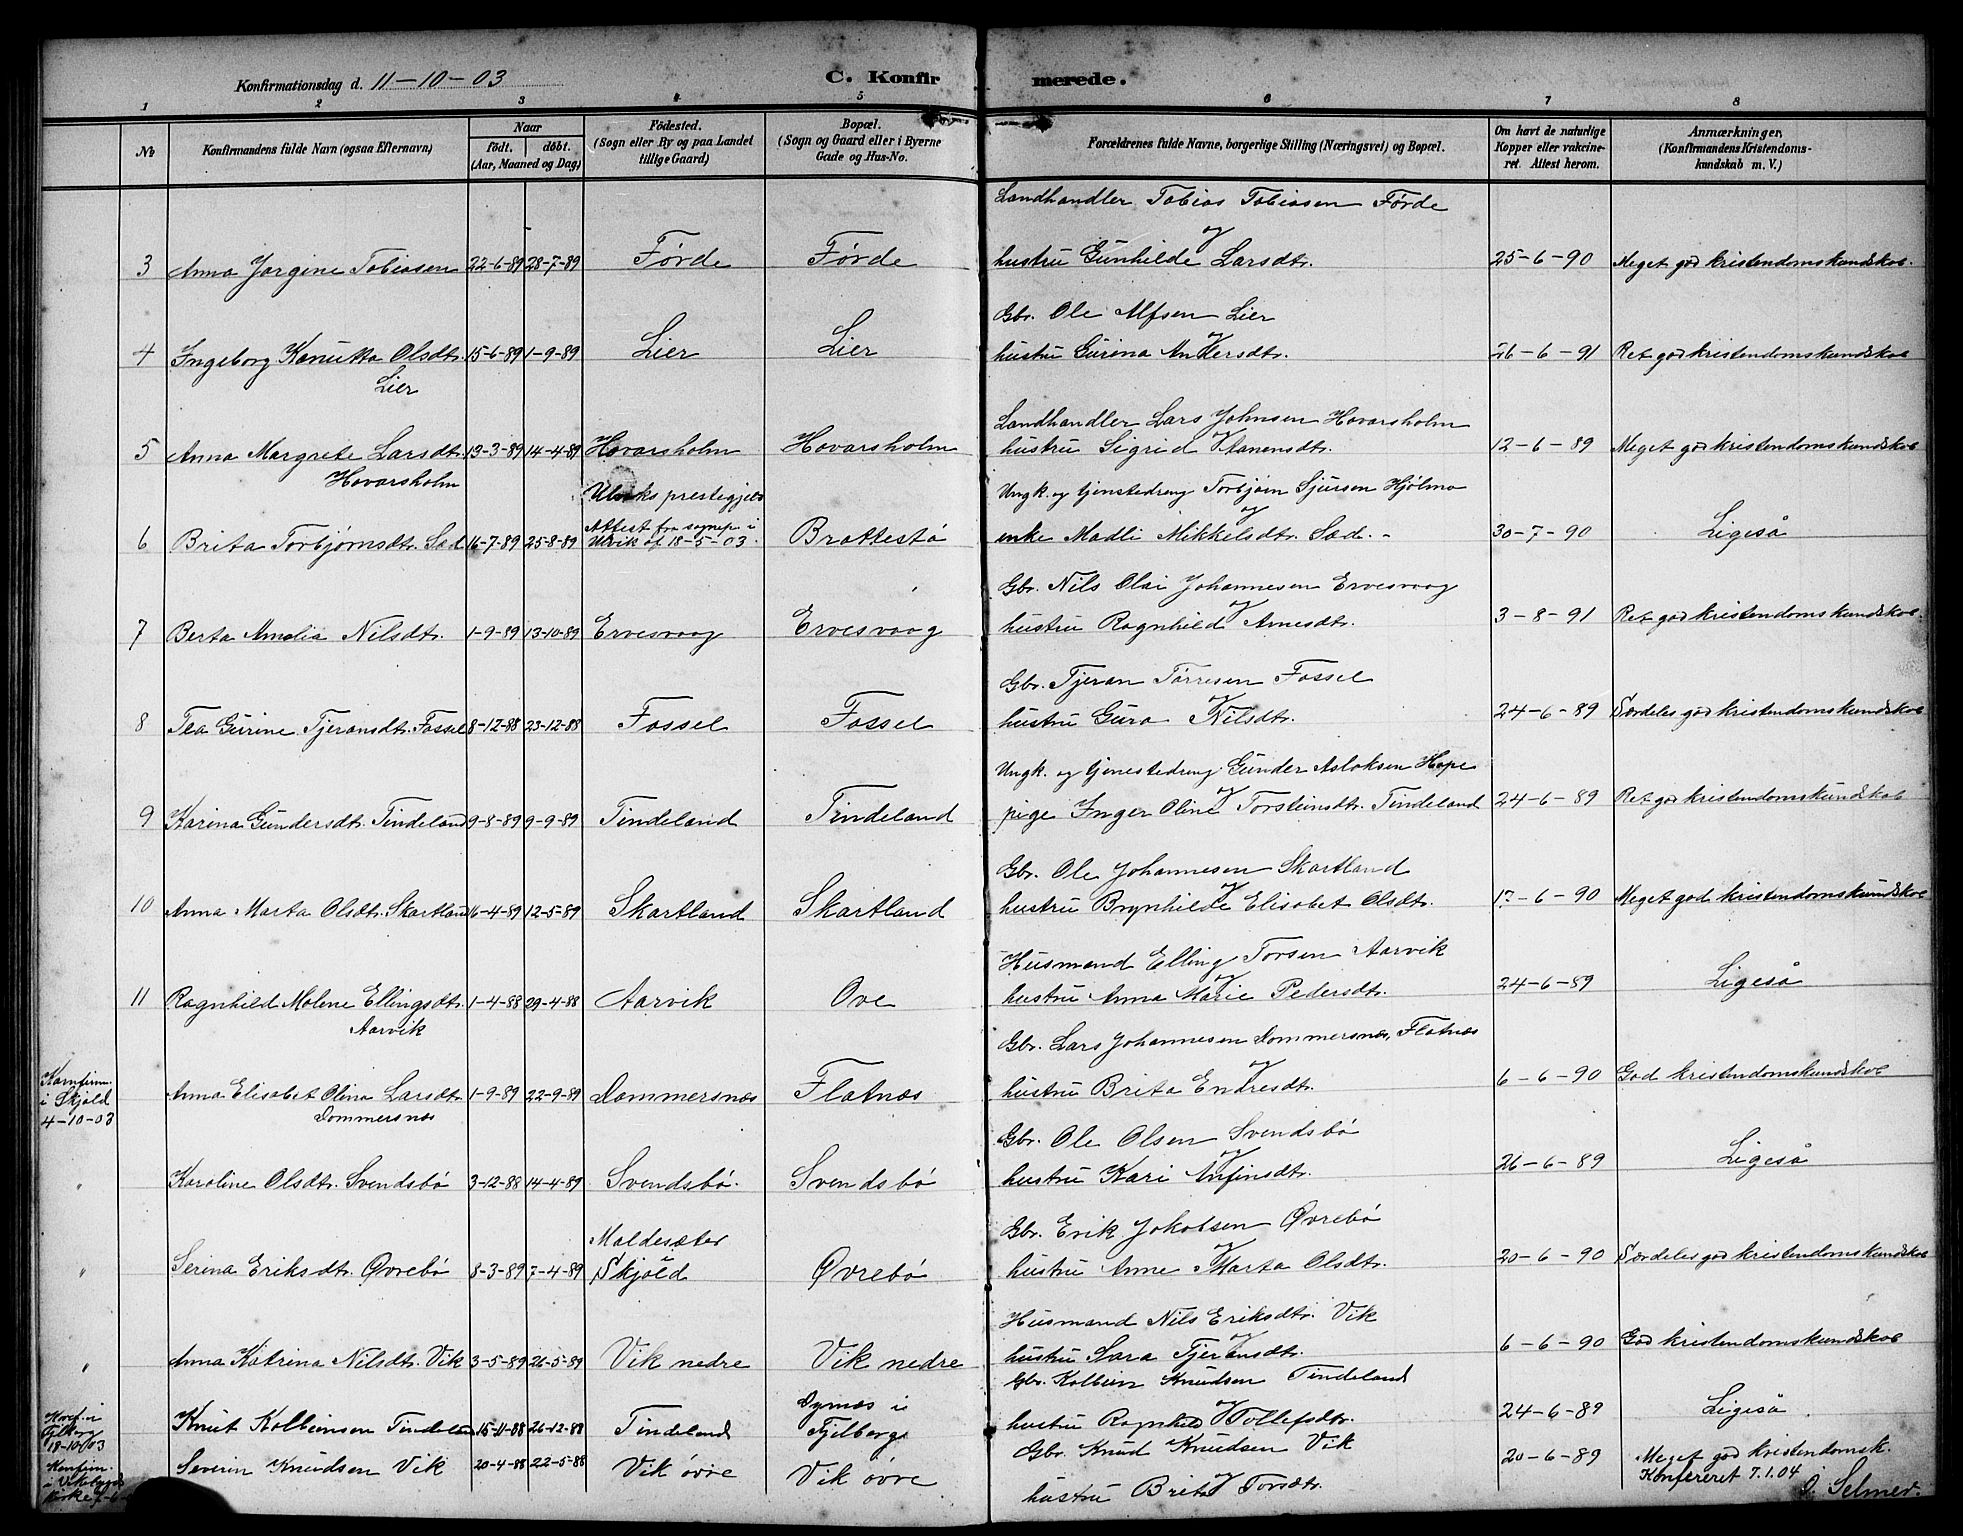 Konfirmationsdag d. 11-10-03
C. Konfirmerede.
1 2 3 4 5 6 7 8
№
Konfirmandens fulde Navn (ogsaa Efternavn)
Naar
födt. döbt.
(Aar, Maaned og Dag)
Födested.
(Sogn eller By og paa Landet
tillige Gaard)
Bopæl.
(Sogn og Gaard eller i Byerne
Gade og Hus-No.
Forældrenes fulde Navne, borgerlige Stilling (Næringsvei) og Bopæl.
Om havt de naturlige
Kopper eller vakcine-
ret. Attest herom.
Anmærkninger,
(Konfirmandens Kristendoms-
kundskab m. V.)
Landhandler Tobias Tobiasen Førde
og
3 Anna Jorgine Tobiasen 22-6-89 28-7-89 Førde Førde hustru Gunhilde Larsdtr. 25-6-90 Meget god kristendomskundskab.
Gbr. Ole Alfsen Lier
og
4 Ingeborg Kanutta Olsdtr. 15-6-89 1-9-89 Lier Lier hustru Gurina Andersdtr. 26-6-91 Ret god kristendomskundskab
Lier
Landhandler Lars Johnsen Hovarsholm
5 Anna Margrete Larsdtr. 13-3-89 14-4-89 Hovarsholm Hovarsholm hustru Sigrid 12-6-89 Meget god kristendomskundskab
Hovarsholm
Ulviks prestegjeld
Ungk. og tjenestedreng Torbjørn Sjursen Hjølmo
og
Attest fra sognep. i
6 Brita Torbjørnsdtr. Sæd 16-7-89 25-8-89 Ulvik af 18-5-03. Brattestø enke Madli Mikkelsdtr. Sæd. 30-7-90 Ligeså
Gbr. Nils Olai Johannesen Ervesvaag
og
7 Berta Amalia Nilsdtr. 1-9-89 13-10-89 Ervesvaag Ervesvaag hustru Ragnhild Arnesdtr. 3-8-91 Ret god kristendomskundskab.
Gbr. Tjeran Tørresen Fossel
og
8 Tea Gurine Tjeransdtr. Fossel 8-12-88 23-12-88 Fossel Fossel hustru Guro Nilsdtr. 24-6-89 Særdeles god kristendomskundskab
Ungk. og tjenestedreng Gunder Aslaksen Hope
og
9 Karina Gundersdtr. Tindeland 9-8-89 9-9-89 Tindeland Tindeland pige Inger Oline Torsteinsdtr. Tindeland 24-6-89 Ret god kristendomskundskab
Gbr. Ole Johannesen Skartland
og
10 Anna Marta Olsdtr. Skartland 16-4-89 12-5-89 Skartland Skartland hustru Brynhilde Elisabet Olsdtr. 17-6-90 Meget god kristendomskundskab
Husmand Elling Torsen Aarvik
og
11 Ragnhild Malene Ellingsdtr. 1-4-88 29-4-88 Aarvik Ove hustru Anna Marie Pedersdtr. 24-6-89 Ligeså
Aarvik
Gbr. Lars Johannesen Dommersnæs, Flatnæs
og
Konfirm.
i Skjold
4-10-03
Anna Elisabet Olina Larsdtr. 1-9-89 22-9-89 Dommersnæs Flatnæs hustru Brita Endresdtr. 6-6-90 God kristendomskundskab
Dommersnæs
Gbr. Ole Olsen Svendsbø
og
" Karoline Olsdtr. Svendsbø 3-12-88 14-4-89 Svendsbø. Svendsbø hustru Kari Anfinsdtr. 26-6-89 Ligeså
Gbr. Erik Jakobsen Øvrebø
og
Maldesæter
i
" Serina Eriksdtr. Øvrebø 8-3-89 7-4-89 Skjold Øvrebø hustru Anne Marta Olsdtr. 20-6-90 Særdeles god kristendomskundskab
Husmand Nils Eriksdtr. Vik
og
" Anna Katrina Nilsdtr. Vik 3-5-89 26-5-89 Vik nedre Vik nedre hustru Sara Tjeransdtr. 6-6-90 God kristendomskundskab
Gbr. Kolbein Knudsen Tindeland
og
i
Fjelberg
18-10-03
Knut Kolbeinsen Tindeland 15-11-88 26-12-88 Tindeland i
Fjelberg hustru Ragnhild Tollefsdtr. 24-6-89 Ligeså
Gbr. Knud Knudsen Vik
og
Konfirm.
i Vikebygd
Severin Knudsen Vik 20-4-88 22-5-88 Vik øvre Vik øvre hustru Brita Torsdtr. 20-6-89 Meget god kristendomsk.
Konfereret 7.1.04
Selmer.